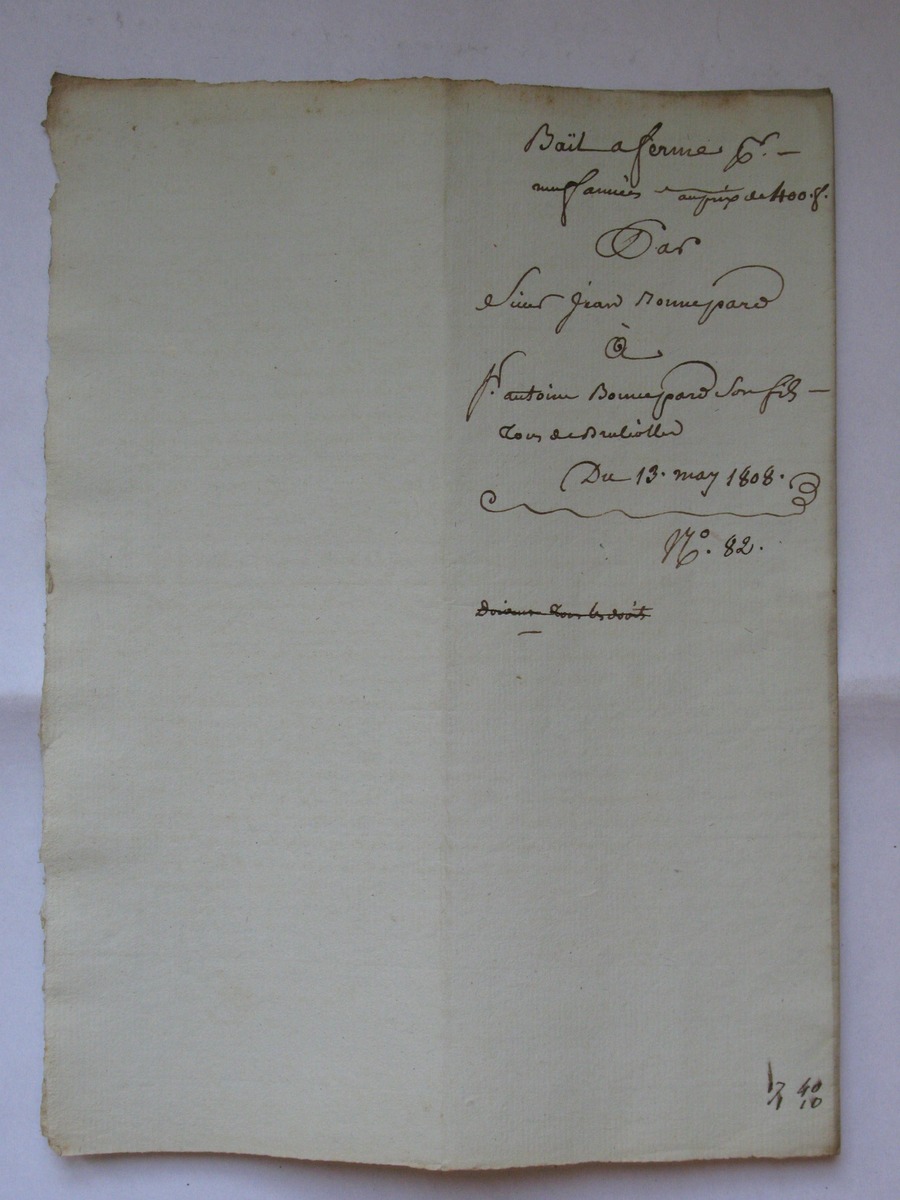 Baïl a ferme pr. —
neuf années au prix de 400 f.
Par
Sieur Jean Bonnepard
À
Sr. antoine Bonnepard Son fils —
Tous de Brulliolles
Du 13. may 1808.
No. 82.
Doivent Tous les droits
40
10